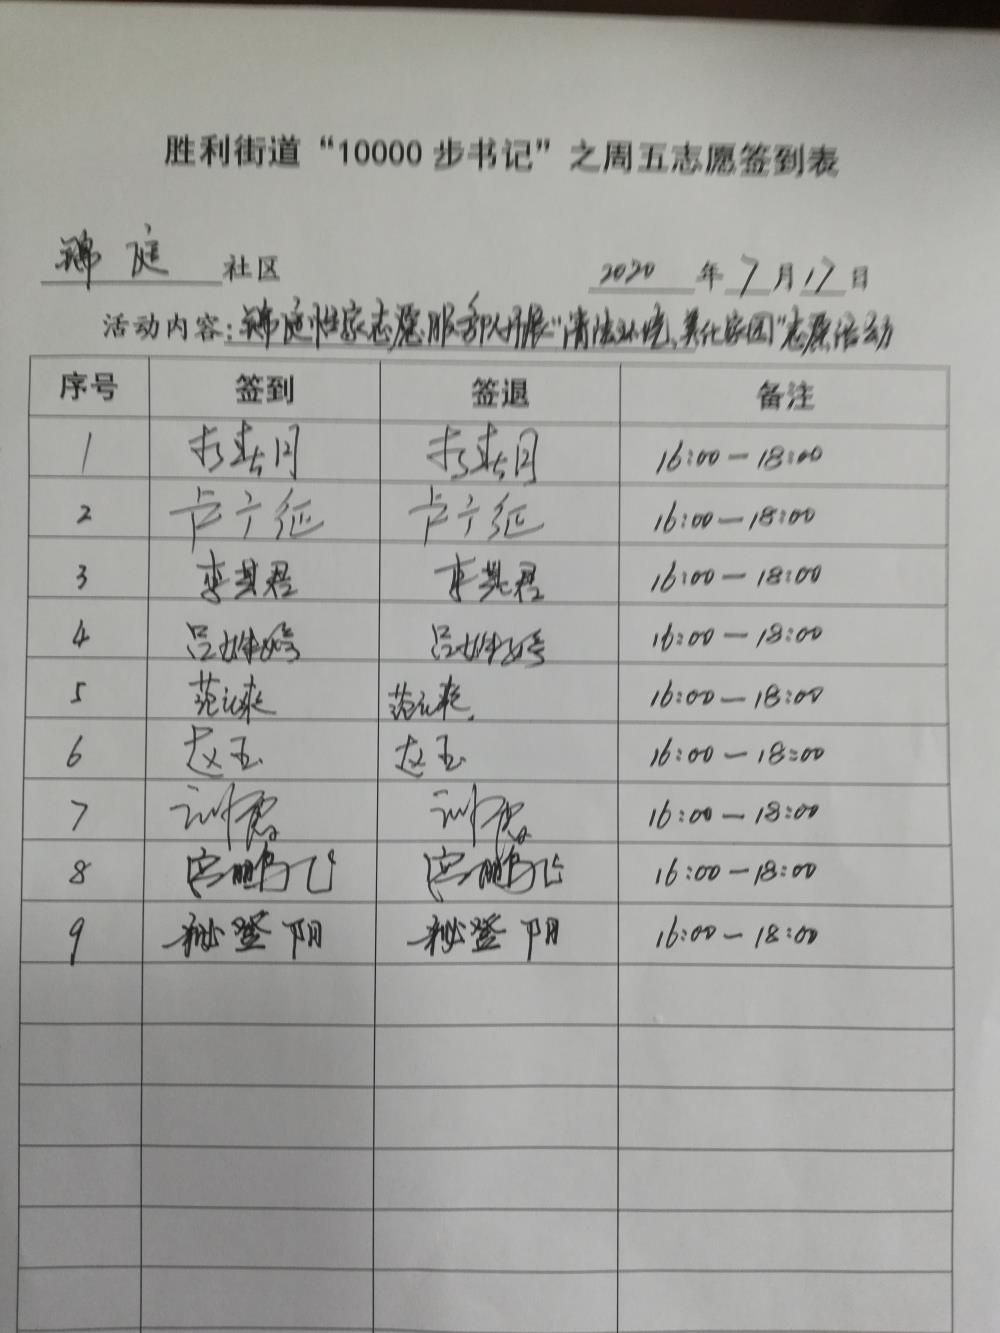 胜利街道“10000步书记”之周五志愿签到表
锦庭社区 2020年7月17日
活动内容:锦庭恒家志愿服务队开展“清洁环境、美化家园”志愿活动
序号 签到 签退 备注
1 春月 春月 16:00—18:00
2 卢宁征 卢宁征 16:00—18:00
3 李其君 李其君 16:00—18:00
4 吕姝婷 吕姝婷 16:00—18:00
5 范元来 范元来 16:00—18:00
6 赵玉 赵玉 16:00—18:00
7 16:00—18:00
8 宫鹏飞 宫鹏飞 16:00—18:00
9 秘登阳 秘登阳 16:00—18:00